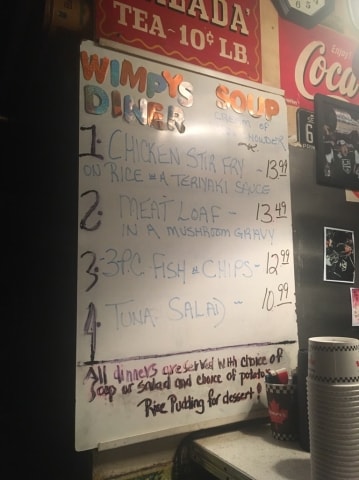 SALADA'
TEA-10¢ LB.
Enjoy
Coca
WIMPYS SOUP
DINER
CREAM OF
CHOWDER
1. CHICKEN STIR FRY - 13.99
ON RICE & TERIYAKI SAUCE
2. MEAT LOAF - 13.49
IN A MUSHROOM GRAVY
3. 3PC FISH & CHIPS - 12.99
4. TUNA SALAD - 10.99
All dinners are served with choice of
soup or salad and choice of potatoe
Rice Pudding for dessert!